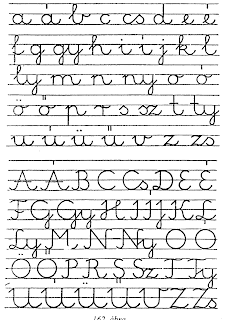 a á b c cs d e é
f g gy h i í j k l
ly m n ny o ó
ö ő p r s sz t ty
u ú ü ű v z zs
A Á B C Cs D E É
F G Gy H I Í J K L
Ly M N Ny O Ó
Ö Ő P R S Sz T Ty
U Ú Ü Ű V Z Zs
162. ábra